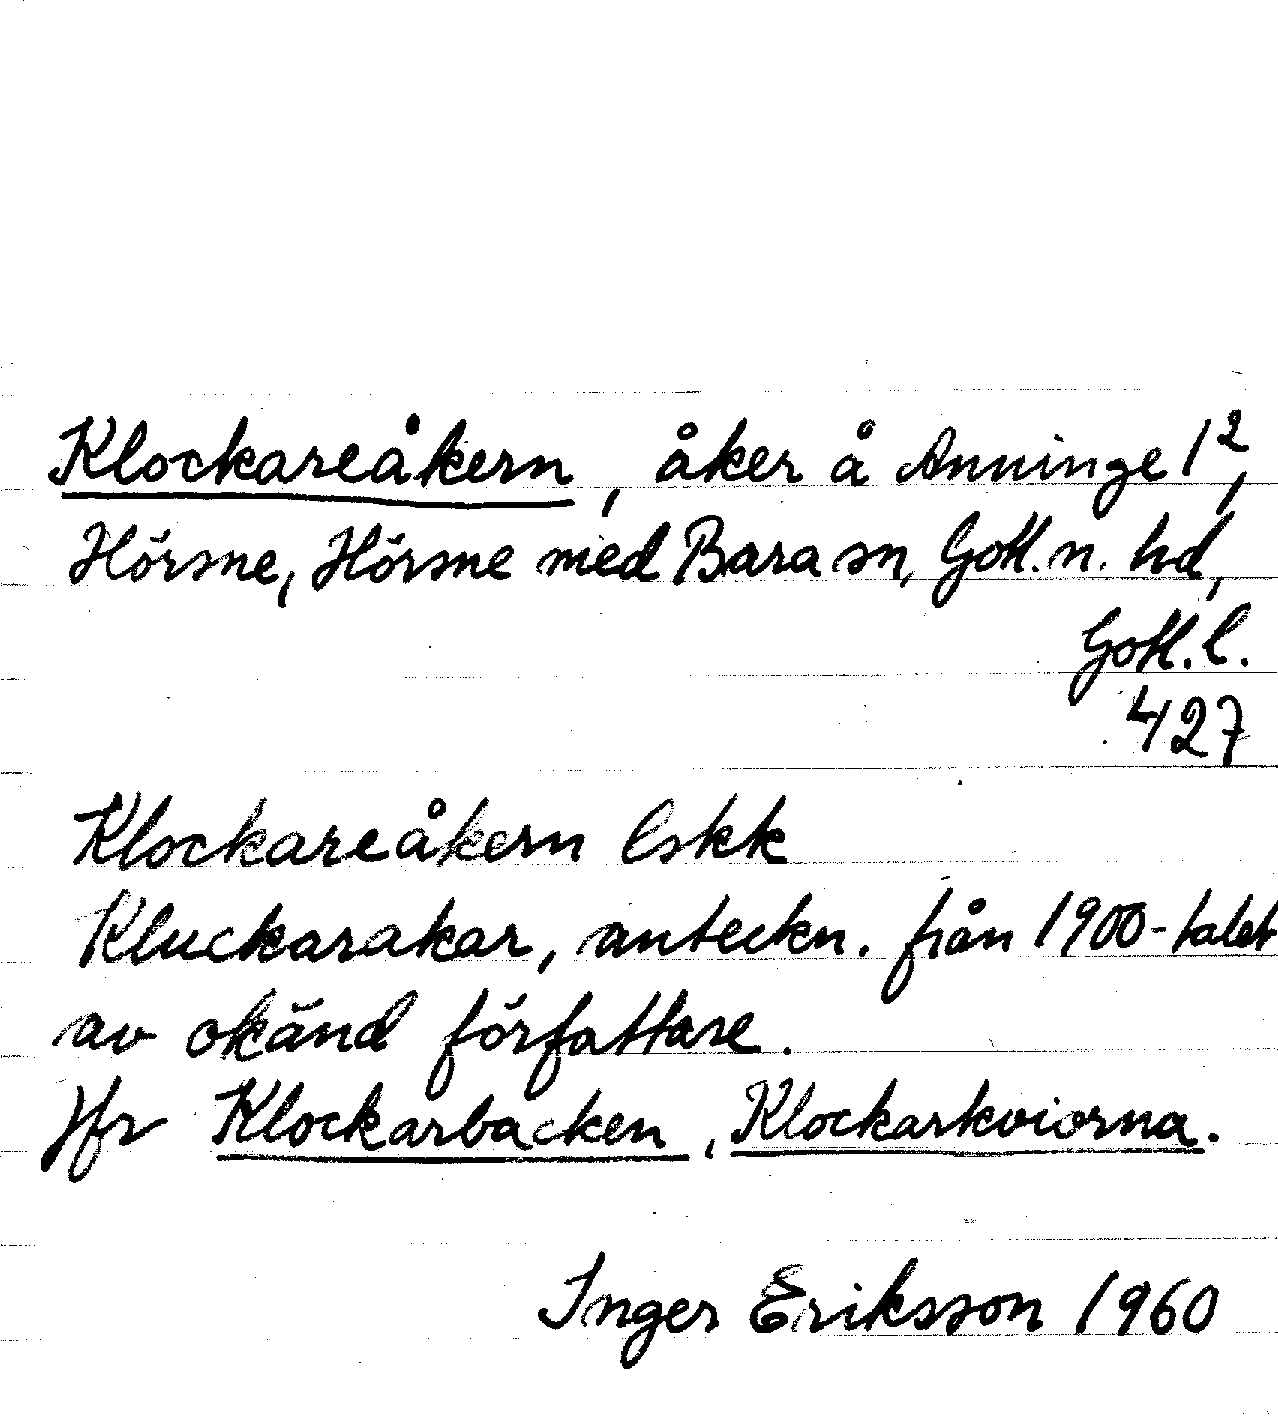 Klockareåkern, åker å Anninge 1²,
Hörsne, Hörsne med Bara sn, Gotl. n. hd,
Gotl. l.
427
Klockareåkern lskk
Kluckarakar, anteckn. från 1900-talet
av okänd författare.
Jfr Klockarbacken, Klockarkviorna.
Inger Eriksson 1960